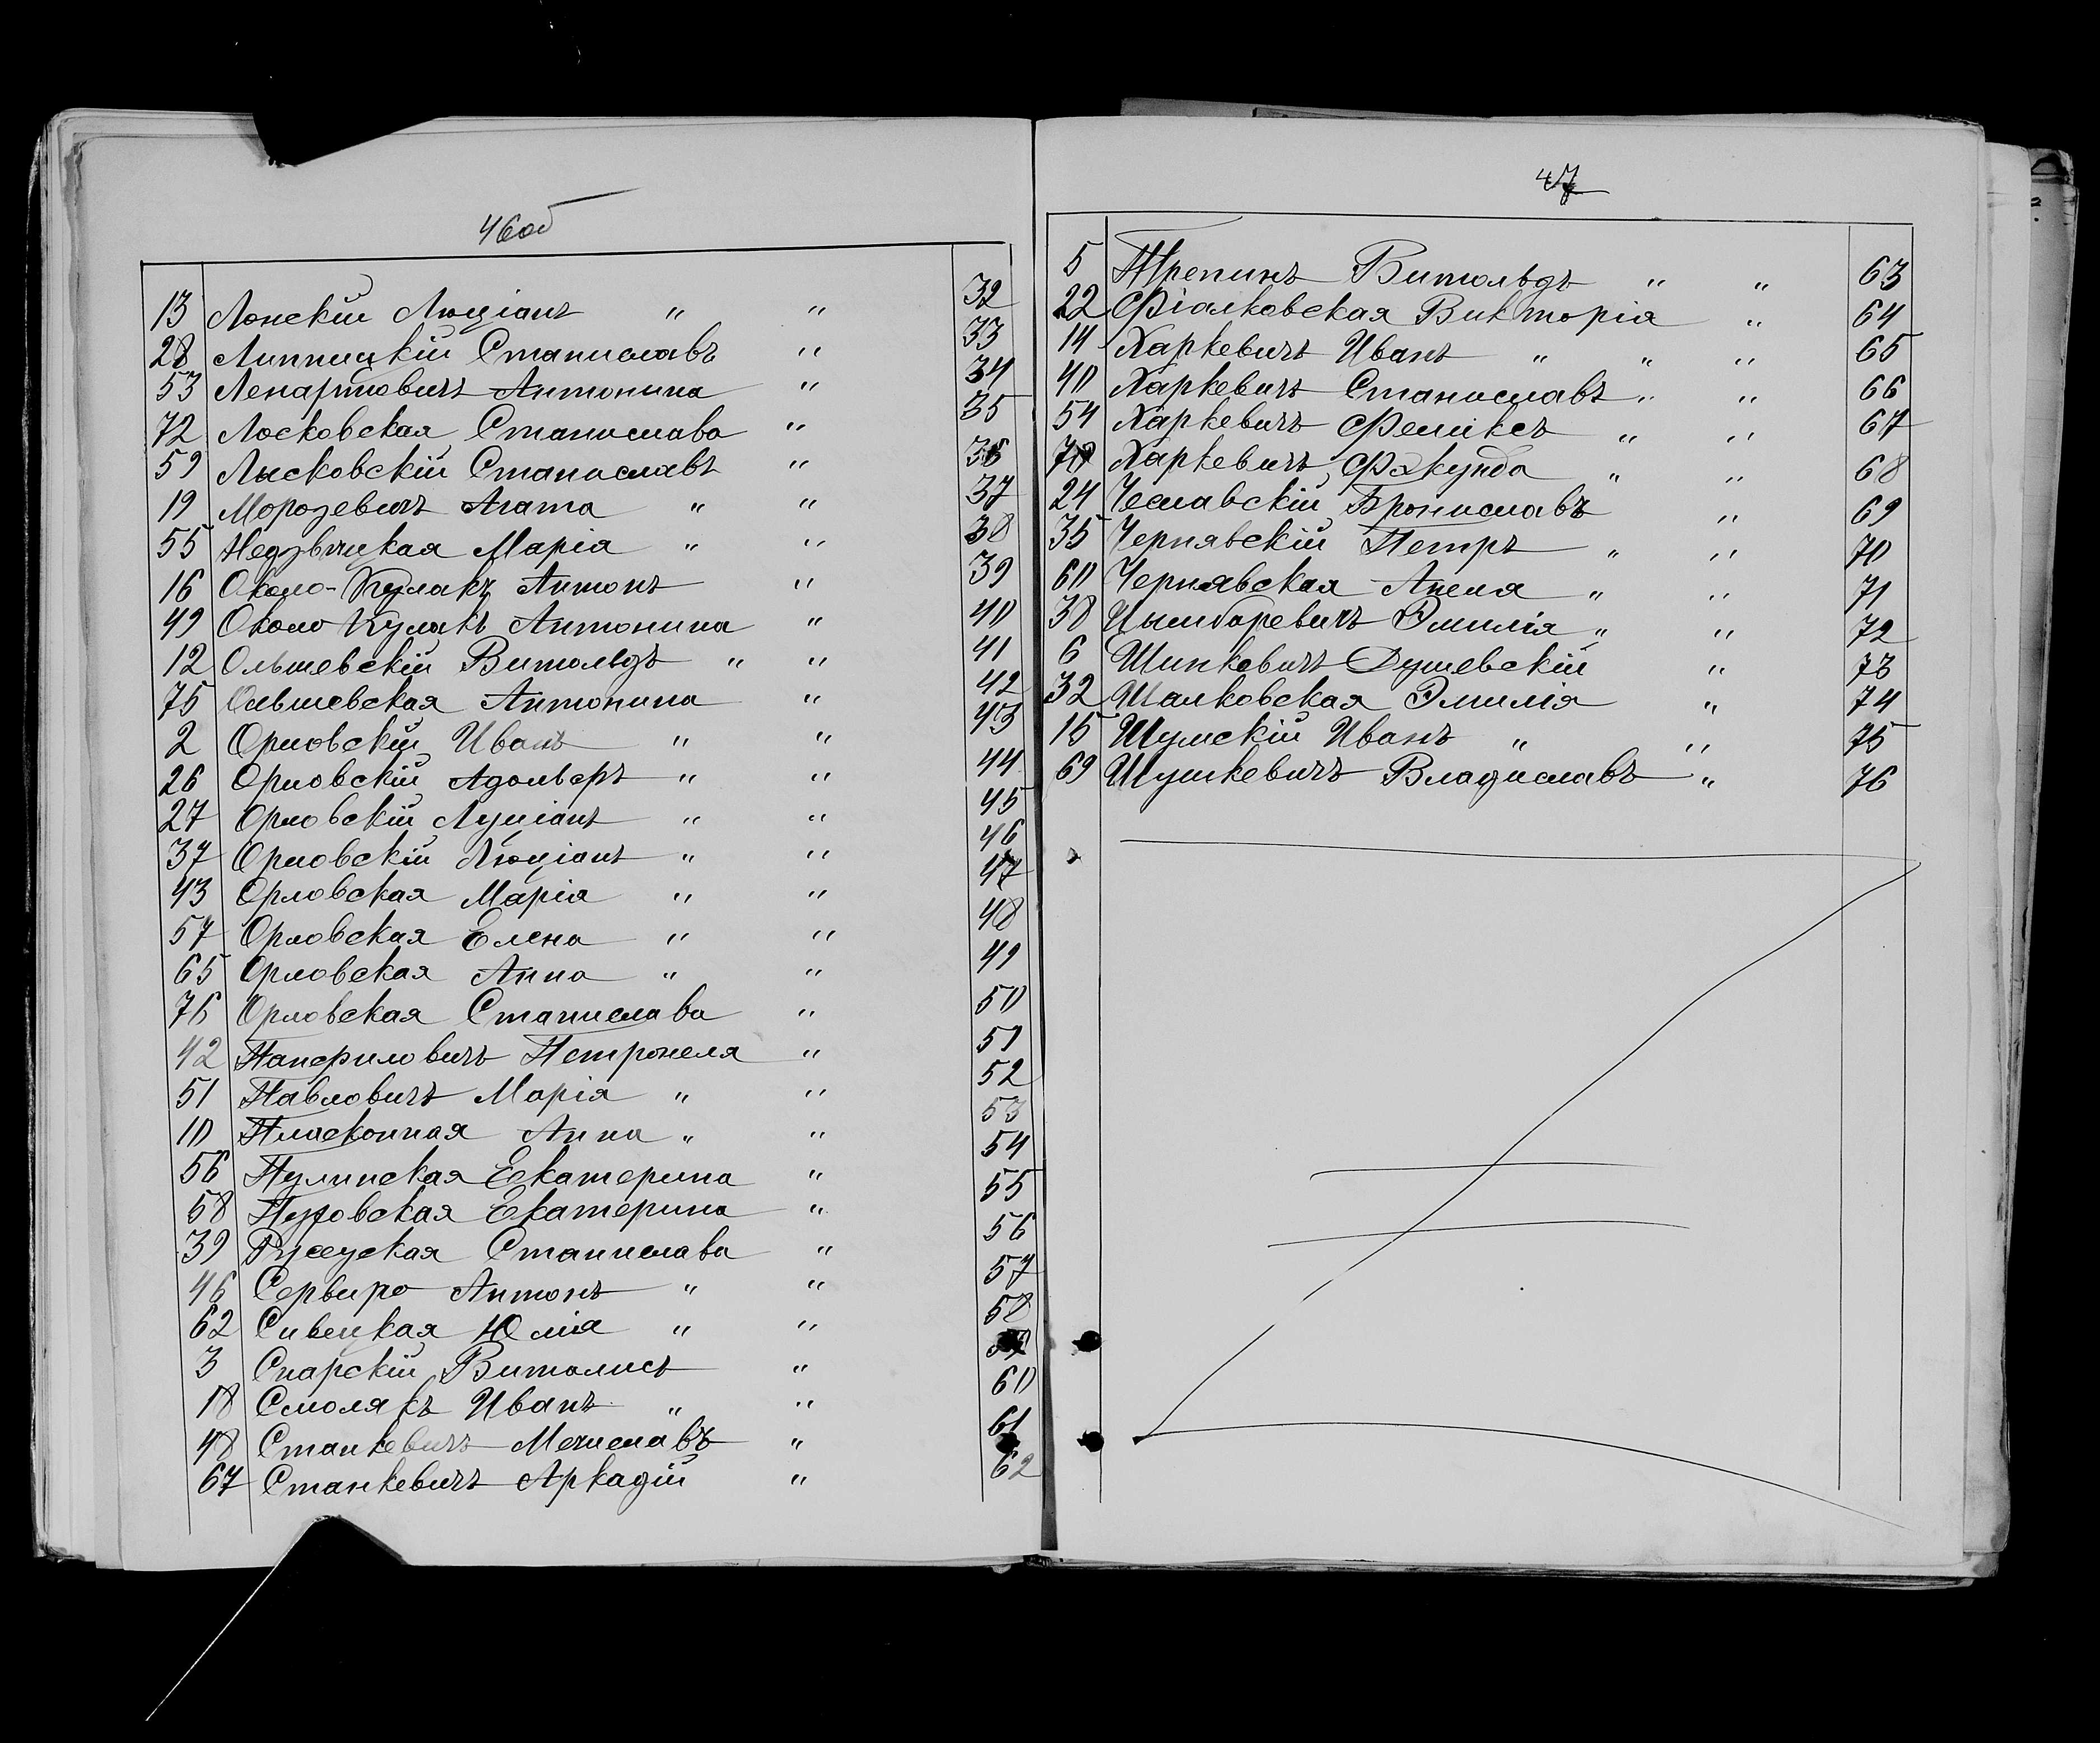 46об
13 Лонскій Люціанъ " " 32
28 Липницкій Станиславъ " 33
53 Ленартовичъ Антонина " 34
72 Лосковская Станислава " 35
59 Лысковскій Станиславъ " 36
19 Морозевичъ Агата " " 37
55 Недзвѣцкая Марія " " 38
16 Около-Кулакъ Антонъ " 39
49 Около Кулакъ Антонина " 40
12 Ольшевскій Витольдъ " " 41
75 Ольшевская Антонина " 42
2 Орловскій Иванъ " " 43
26 Орловскій Адольфъ " " 44
27 Орловскій Луціанъ " " 45
37 Орловскій Люціанъ " " 46
43 Орловская Марія " " 47
57 Орловская Елена " " 48
65 Орловская Анна " " 49
76 Орловская Станислава " 50
42 Панфиловичъ Петронеля " 51
51 Павловичъ Марія " " 52
10 Пласконная Анна " " 53
56 Пулинская Екатерина " 54
58 Пузовская Екатерина " 55
39 Руссуская Станислава " 56
46 Сервиро Антонъ " " 57
62 Сивецкая Юлія " " 58
3 Снарскій Витолисъ " 59
18 Смолякъ Иванъ " " 60
48 Станкевичъ Мечиславъ " 61
67 Станкевичъ Аркадій " 62
47
5 Трепинъ Витольдъ " " 63
22 Фіалковская Викторія " 64
14 Харкевичъ Иванъ " " " 65
40 Харкевичъ Станиславъ " " 66
54 Харкевичъ Феликсъ " " 67
70 Харкевичъ Факунда " " 68
24 Чеславскій Брониславъ " 69
35 Чернявскій Петръ " " 70
60 Чернявская Анеля " " 71
38 Цымбаревичъ Эмилія " " 72
6 Шинкевичъ Душевскій " 73
32 Шалковская Эмилія " 74
15 Шумскій Иванъ " " 75
69 Шушкевичъ Владиславъ " 76